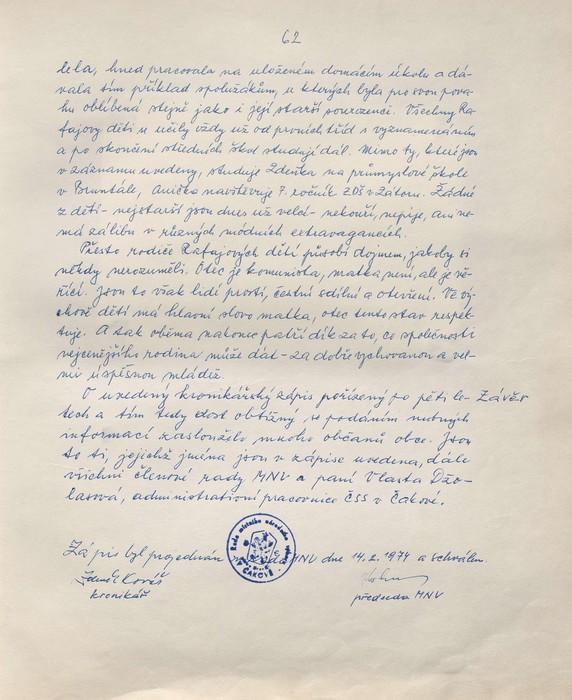 62
lela, hned pracovala na uloženém domácím úkolu a dá-
vala tím příklad spolužákům, u kterých byla pro svou pova-
hu oblíbená stejně jako i její starší sourozenci. Všechny Ra-
fajovy děti se učily vždy už od prvních tříd s vyznamenáním
a po skončení středních škol studují dál. Mimo ty, které jsou
v záznamu uvedeny, studuje Zdeňka na průmyslové škole
v Bruntále, Anička navštěvuje 7. ročník ZDŠ v Zátoru. Žádné
z dětí - nejstarší jsou dnes už velcí - nekouří, nepije, ani ne-
má zálibu v různých módních extravagancích.
Přesto rodiče Rafajových dětí působí dojmem, jakoby si
někdy nerozuměli. Otec je komunista, matka není, ale je vě-
řící. Jsou to však lidé prostí, čestní sdílní a otevření. Ve vý-
chově dětí má hlavní slovo matka, otec tento stav respek-
tuje. A tak oběma nakonec patří dík za to, co společnosti
nejcennějšího rodina může dát - za dobře vychovanou a vel-
mi úspěšnou mládež.
O uvedený kronikářský zápis pořízený po pěti le- Závěr
tech a tím tedy dost obtížný se podáním nutných
informací zasloužilo mnoho občanů obce. Jsou
to ti, jejichž jména jsou v zápise uvedena, dále
všichni členové rady MNV a paní Vlasta
administrativní pracovnice ČSS v Čakové.
Rada místního národního výboru
V ČAKOVÉ
Zápis byl projednán MNV dne 14.2.1974 a schválen.
Zdeněk Kováš
kronikář
předseda MNV